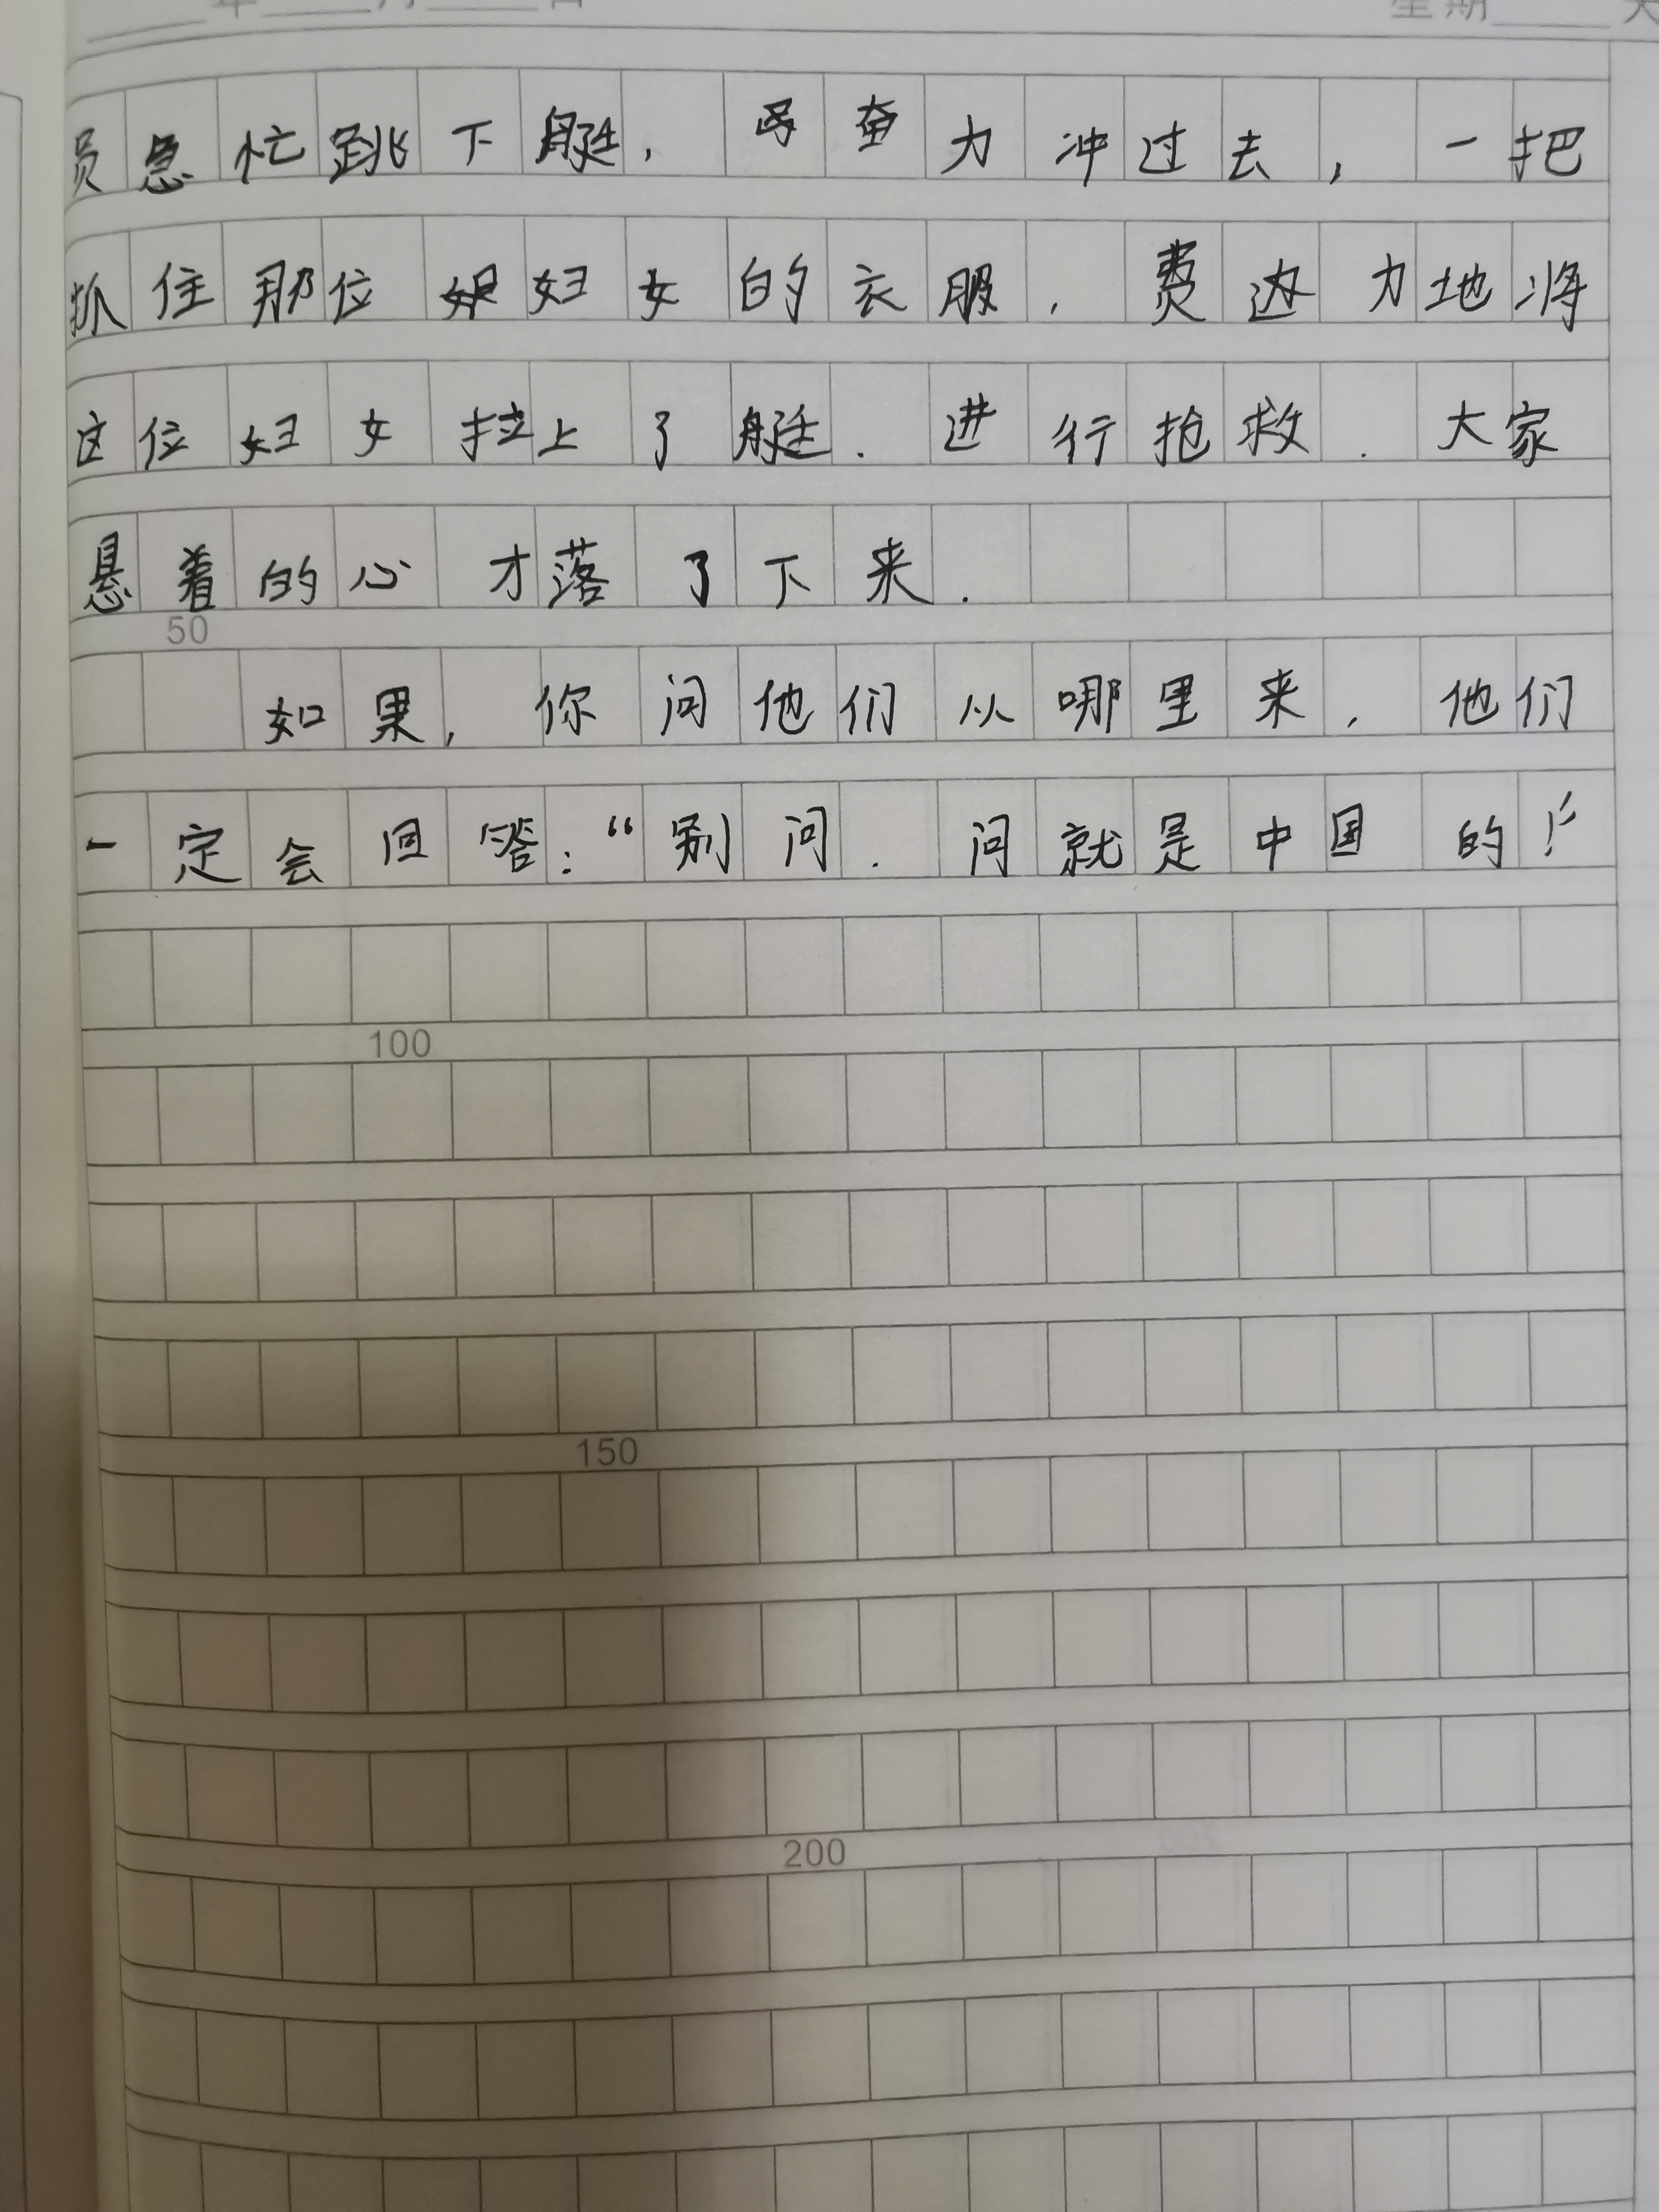 年 月 日 星期
员急忙跳下艇，奋力冲过去，一把
抓住那位妇女的衣服，费力地将
这位妇女拉上了艇．进行抢救．大家
悬着的心才落了下来．
50
如果，你问他们从哪里来，他们
一定会回答：“别问．问就是中国的！”
100
150
200